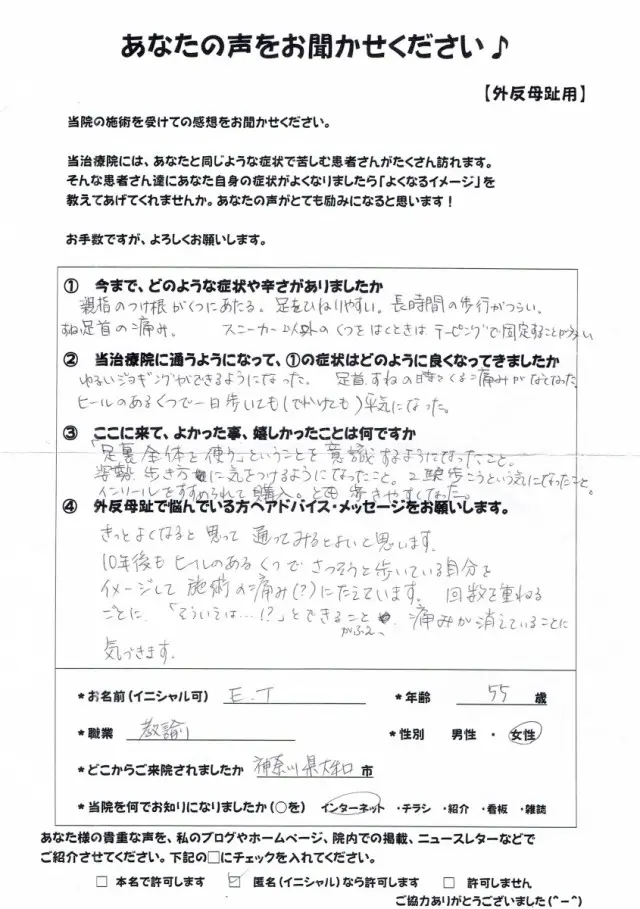 あなたの声をお聞かせください♪
【外反母趾用】
当院の施術を受けての感想をお聞かせください。
当治療院には、あなたと同じような症状で苦しむ患者さんがたくさん訪れます。
そんな患者さん達にあなた自身の症状がよくなりましたら「よくなるイメージ」を
教えてあげてくれませんか。あなたの声がとても励みになると思います!
お手数ですが、よろしくお願いします。
① 今まで、どのような症状や辛さがありましたか
親指のつけ根がくつにあたる。足をひねりやすい。長時間の歩行がつらい。
すね足首の痛み。 スニーカー以外のくつをはくときはテーピングで固定することが多い
② 当治療院に通うようになって、①の症状はどのように良くなってきましたか
ゆるいジョギングができるようになった。 足首、すねの時々くる痛みがなくなった。
ヒールのあるくつで一日歩いても(でかけても)平気になった。
③ ここに来て、よかった事、嬉しかったことは何ですか
「足裏全体を使う」ということを意識するようになったこと。
姿勢 歩き方に気をつけるようになったこと。 歩こうという気になったこと。
インソールをすすめられて購入。 歩きやすくなった。
④ 外反母趾で悩んでいる方へアドバイス・メッセージをお願いします。
きっとよくなると思って通ってみるとよいと思います。
10年後もヒールのあるくつでさっそうと歩いている自分を
イメージして施術の痛み(?)にたえています。 回数を重ねる
ごとに、「そういえば…!?」とできることがふえ、痛みが消えていることに
気づきます。
*お名前(イニシャル可) E.T *年齢 55 歳
*職業 教諭 *性別 男性 ・ 女性
*どこからご来院されましたか 神奈川県 市
*当院を何でお知りになりましたか(○を) インターネット ・チラシ ・紹介 ・看板 ・雑誌
あなた様の貴重な声を、私のブログやホームページ、院内での掲載、ニュースレターなどで
ご紹介させてください。下記の□にチェックを入れてください。
□ 本名で許可します ☑ 匿名(イニシャル)なら許可します □ 許可しません
ご協力ありがとうございました(^-^)